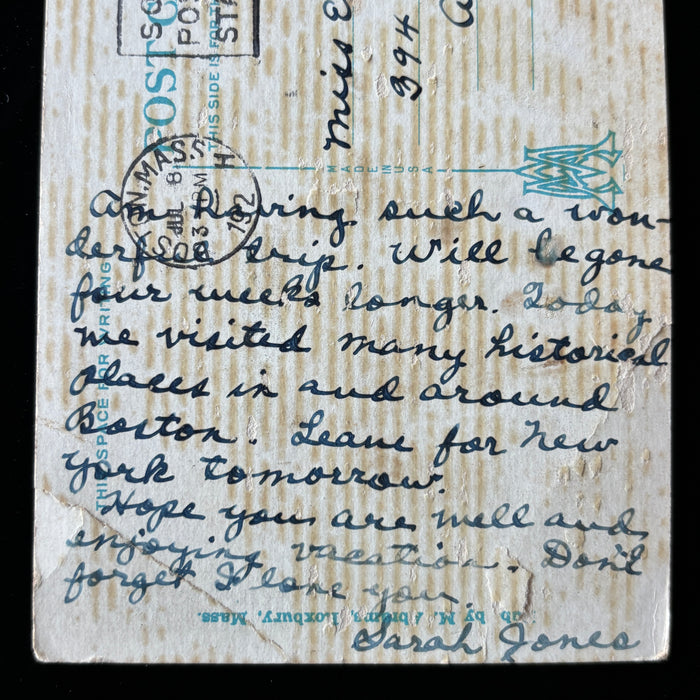 Am having such a won-
derful trip. Will be gone
four weeks longer. Today
we visited many historical
places in and around
Boston. Leave for New
York tomorrow.
Hope you are well and
enjoying vacation. Don't
forget I love you.
Sarah Jones
Miss E
394
POST C
THIS SIDE IS FOR TH
MADE IN U.S.A.
THIS SPACE FOR WRITING
N. MASS.
JUL 8
3 PM
192
PO
STA
by M. Abrams, Roxbury, Mass.